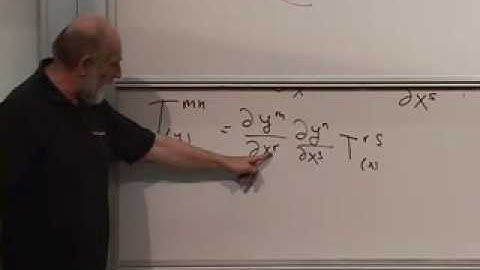 x ∂x^s
T^{mn}_{(y)} = ∂y^m/∂x^r ∂y^n/∂x^s T^{rs}_{(x)}